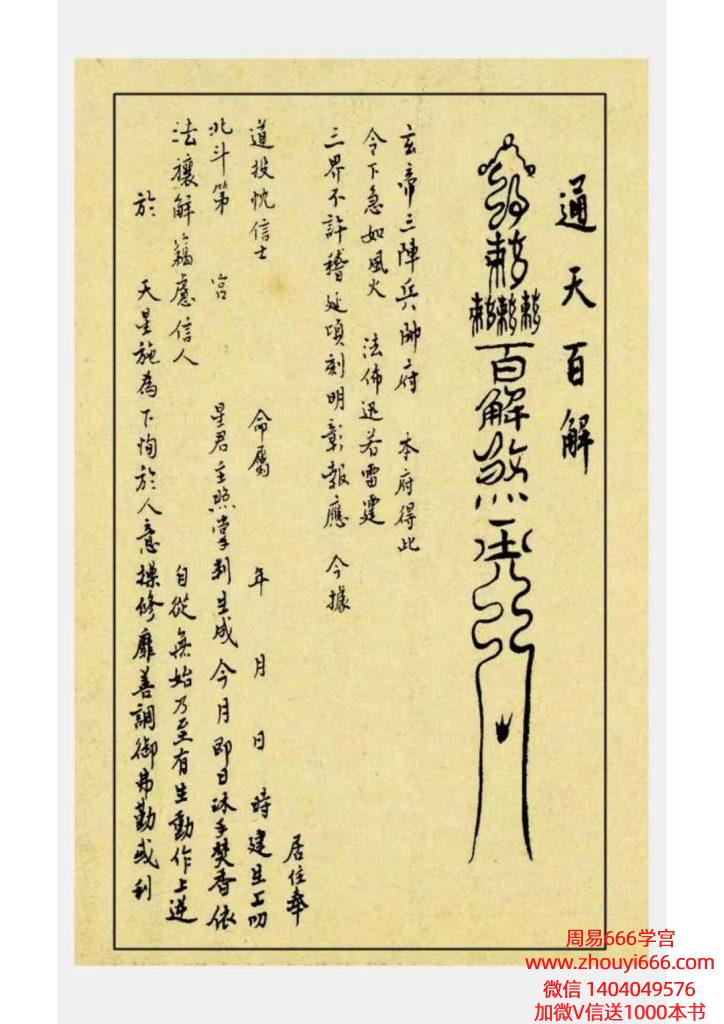 通天百解
百解
玄帝三陣兵帥府　本府得此
令下急如風火　法佈迅若雷霆
三界不許稽延頃刻明彰報應　今據
居住奉
道投忱信士　命屬　年　月　日　時建生上叩
北斗第　宮　星君主照掌判生成今月即日沐手焚香依
法禳解　信人　自從無始乃至有生動作上逆
於　天星施為下恂於人意操修靡善調御弗勤或利
周易666学宫
www.zhouyi666.com
微信 1404049576
加微V信送1000本书